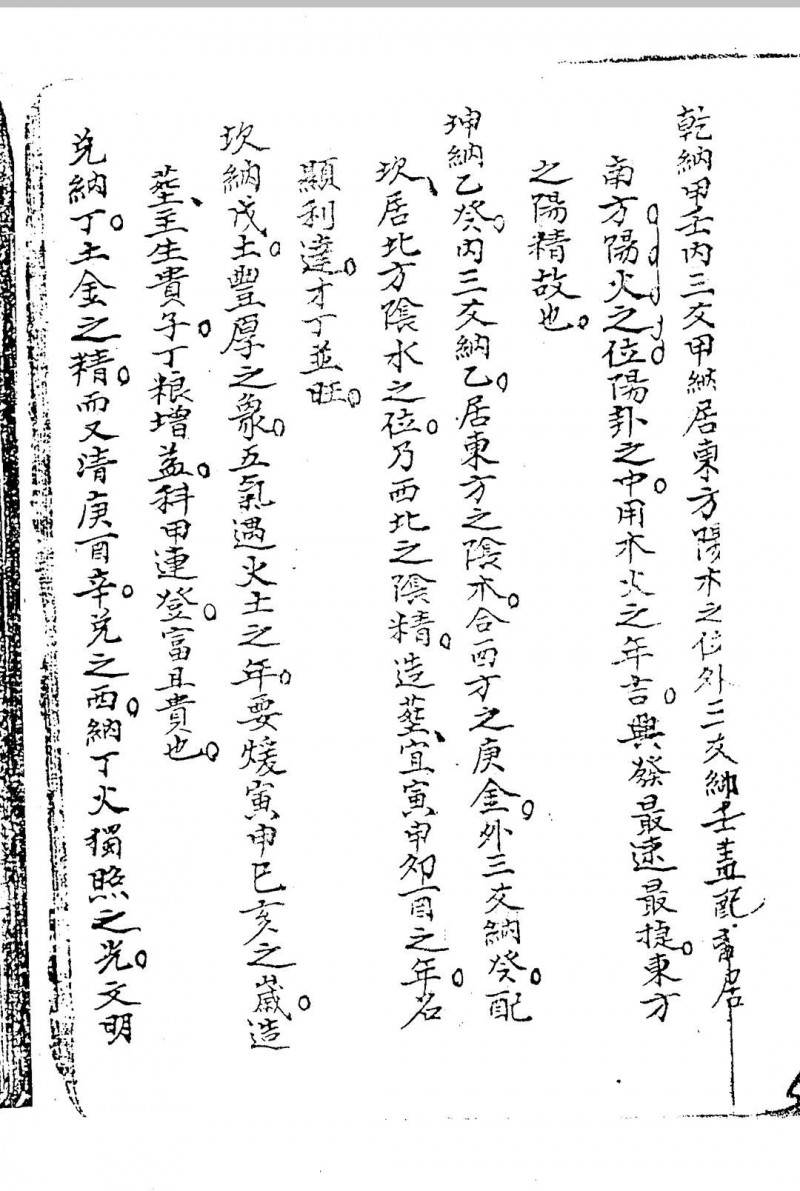 乾納甲壬內三爻甲納居東方陽木之位外三爻納壬蓋配居
南方。陽火之位。陽卦之中。用木火之年吉。興發最速最捷。東方
之陽精故也。
坤納乙癸。內三爻納乙。居東方之陰木。合西方之庚金。外三爻納癸。配
坎、居北方陰水之位。乃西北之陰精。造葬、宜寅申卯酉之年。名
顯利達。才丁並旺。
坎納戊土。豐厚之象。五氣遇火土之年。要煖寅申巳亥之歲。造
葬、主生貴子。丁粮增益。科甲連登。富且貴也。
兌納丁。土金之精。而又清庚酉辛。兌之西。納丁火獨照之光。文明